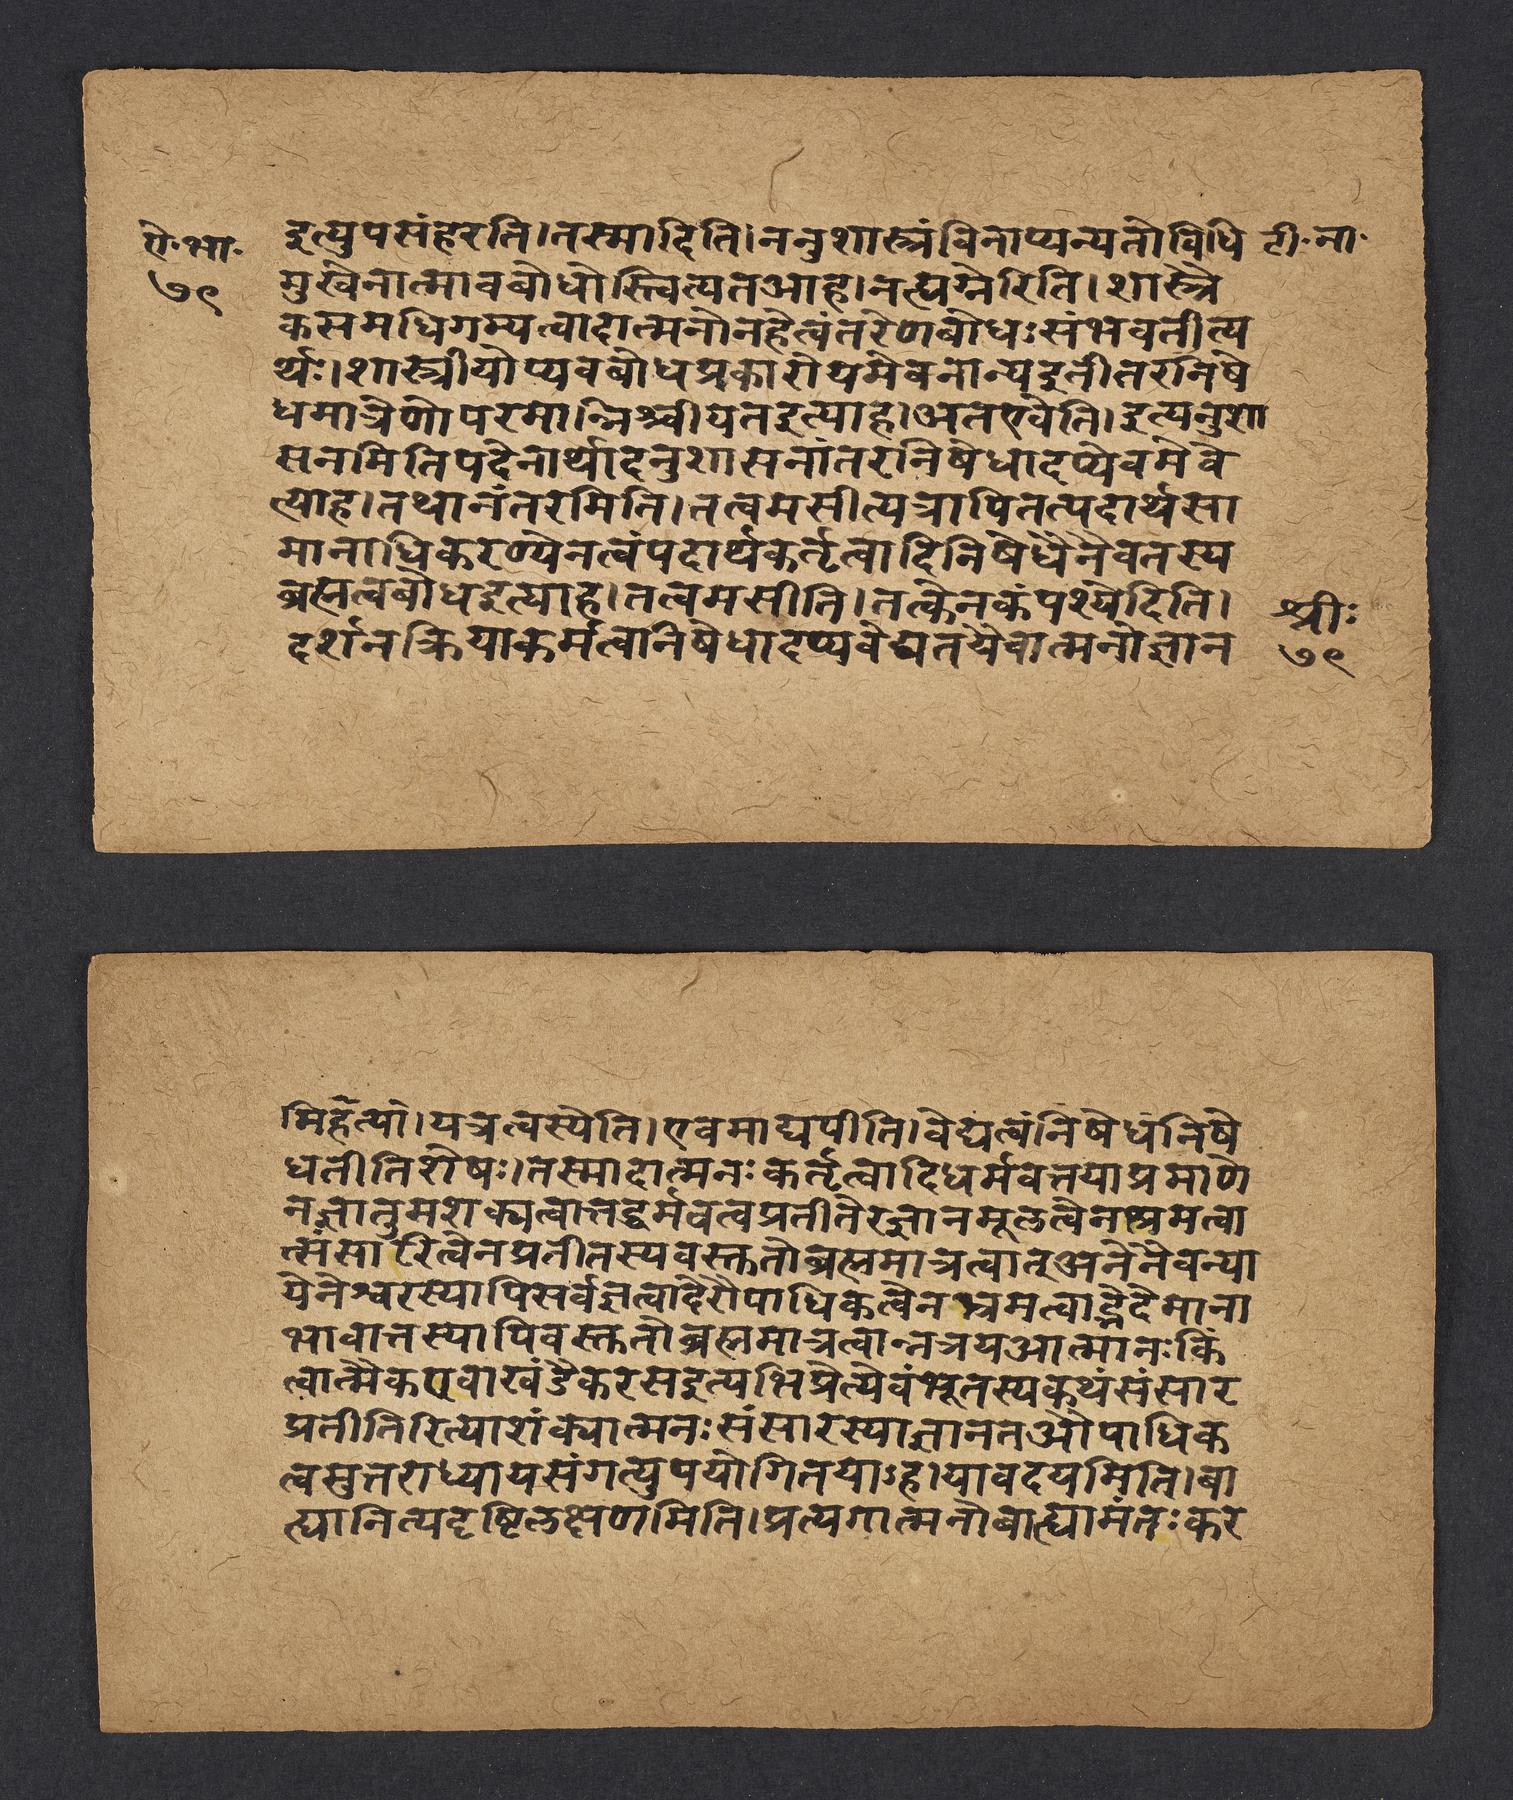 ऐ·भा·
७९
इत्युपसंहरति।तस्मादिति।ननुशास्त्रंविनाप्यन्यतोविधि
टी·ना·
मुखेनात्मावबोधोस्त्वित्यतआह।नत्ह्यग्नेरिति।शास्त्रै
कसमधिगम्यत्वादात्मनोनहेत्वंतरेणबोधःसंभवतीत्य
र्थः।शास्त्रीयोप्यवबोधप्रकारोयमेवनान्यइतीतरनिषे
धमात्रेणोपरमान्निश्चीयतइत्याह।अतएवेति।इत्यनुशा
सनमितिपदेनार्थादनुशासनांतरनिषेधादप्येवमेवे
त्याह।तथानंतरमिति।तत्वमसीत्यत्रापितत्पदार्थसा
मानाधिकरण्येनत्वंपदार्थकर्तृत्वादिनिषेधेनैवतस्य
ब्रह्मत्वबोधइत्याह।तत्वमसीति।तत्केनकंपश्येदिति।
दर्शनक्रियाकर्मत्वनिषेधादप्यवेद्यतयैवात्मनोज्ञान
श्रीः
७९
मिहेत्या।यत्रत्वस्येति।एवमाद्यपीति।वेद्यत्वंनिषेधंनिषे
धतीतिशेषः।तस्मादात्मनःकर्तृत्वादिधर्मवत्तयाप्रमाणे
नज्ञातुमशक्यत्वात्तद्धर्मवत्वप्रतीतेरज्ञानमूलत्वेनभ्रमत्वा
त्संसारित्वेनप्रतीतस्यवस्तुतोब्रह्ममात्रत्वात्अनेनैवन्या
येनेश्वरस्यापिसर्वज्ञत्वादेरौपाधिकत्वेनभ्रमत्वाद्भेदेमाना
भावात्तस्यापिवस्तुतोब्रह्ममात्रत्वान्नत्रयआत्मानःकिं
त्वात्मैकएवाखंडैकरसइत्यभिप्रेत्यैवंभूतस्यकथंसंसार
प्रतीतिरित्याशंक्यात्मनःसंसारस्याज्ञानतऔपाधिक
त्वमुत्तराध्यायसंगत्युपयोगितयाऽह।यावदयमिति।बा
ह्यानित्यदृष्टिलक्षणमिति।प्रत्यगात्मनोबाह्यामंतःकर